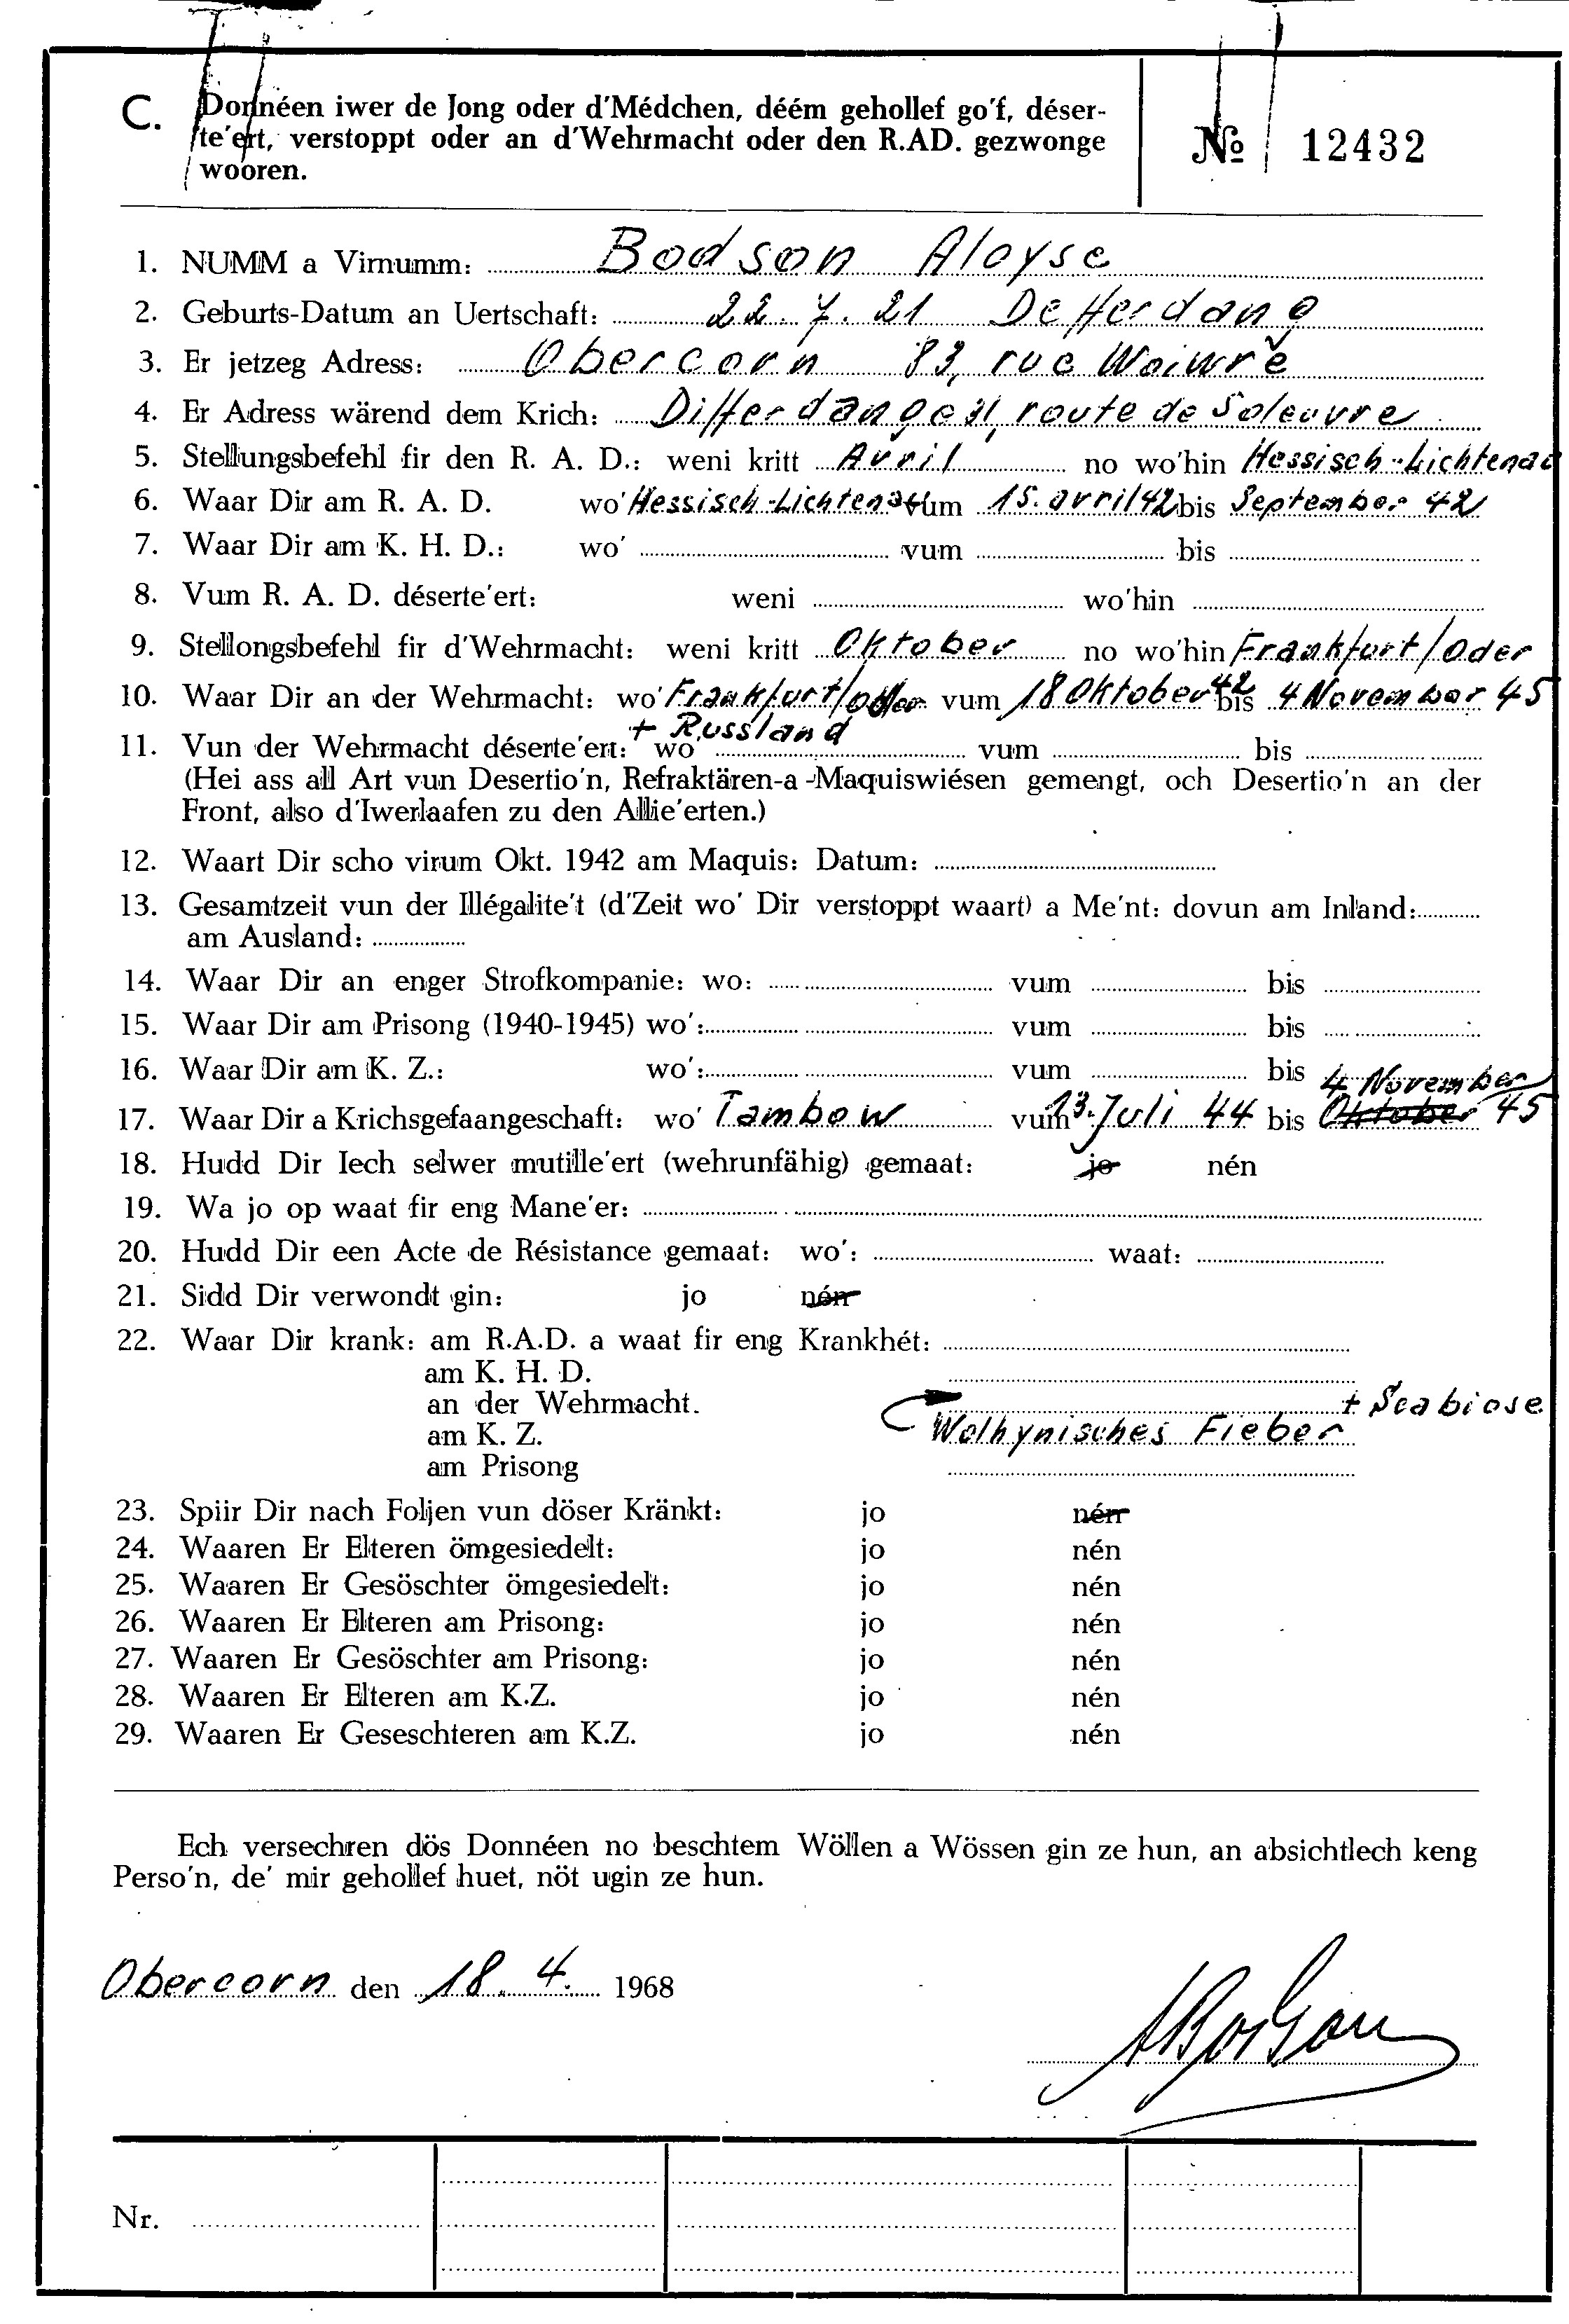 C. Donnéen iwer de Jong oder d'Médchen, déém gehollef go'f, déser-
te'ert, verstoppt oder an d'Wehrmacht oder den R.AD. gezwonge
wooren.
№ 12432
1. NUMM a Virnumm: Bodson Aloyse
2. Geburts-Datum an Uertschaft: 22.7.21 Defferdang
3. Er jetzeg Adress: Obercorn 83, rue Woiwre
4. Er Adress wärend dem Krich: Differdange 31, route de Soleuvre
5. Stellungsbefehl fir den R. A. D.: weni kritt Avril no wo'hin Hessisch-Lichtenau
6. Waar Dir am R. A. D. wo' Hessisch-Lichtenau vum 15. avril 42 bis September 42
7. Waar Dir am K. H. D.: wo' vum bis
8. Vum R. A. D. déserte'ert: weni wo'hin
9. Stellongsbefehl fir d'Wehrmacht: weni kritt Oktober no wo'hin Frankfurt/Oder
10. Waar Dir an der Wehrmacht: wo' Frankfurt/Oder vum 18 Oktober 42 bis 4 November 45
+ Russland
11. Vun der Wehrmacht déserte'ert: wo' vum bis
(Hei ass all Art vun Desertio'n, Refraktären-a-Maquiswiésen gemengt, och Desertio'n an der
Front, also d'Iwerlaafen zu den Allie'erten.)
12. Waart Dir scho virum Okt. 1942 am Maquis: Datum:
13. Gesamtzeit vun der Illégalite't (d'Zeit wo' Dir verstoppt waart) a Me'nt: dovun am Inland:
am Ausland:
14. Waar Dir an enger Strofkompanie: wo: vum bis
15. Waar Dir am Prisong (1940-1945) wo': vum bis
16. Waar Dir am K. Z.: wo': vum bis
4. November
17. Waar Dir a Krichsgefaangeschaft: wo' Tambow vum 13. Juli 44 bis Oktober 45
18. Hudd Dir Iech selwer mutille'ert (wehrunfähig) gemaat: jo nén
19. Wa jo op waat fir eng Mane'er:
20. Hudd Dir een Acte de Résistance gemaat: wo': waat:
21. Sidd Dir verwondt gin: jo nén
22. Waar Dir krank: am R.A.D. a waat fir eng Krankhét:
am K. H. D.
an der Wehrmacht. + Scabiose
am K. Z. Wolhynisches Fieber
am Prisong
23. Spiir Dir nach Foljen vun döser Kränkt: jo nén
24. Waaren Er Elteren ömgesiedelt: jo nén
25. Waaren Er Gesöschter ömgesiedelt: jo nén
26. Waaren Er Elteren am Prisong: jo nén
27. Waaren Er Gesöschter am Prisong: jo nén
28. Waaren Er Elteren am K.Z. jo nén
29. Waaren Er Geseschteren am K.Z. jo nén
Ech versechren dös Donnéen no beschtem Wöllen a Wössen gin ze hun, an absichtlech keng
Perso'n, de' mir gehollef huet, nöt ugin ze hun.
Obercorn den 18. 4. 1968
ABodson
Nr.